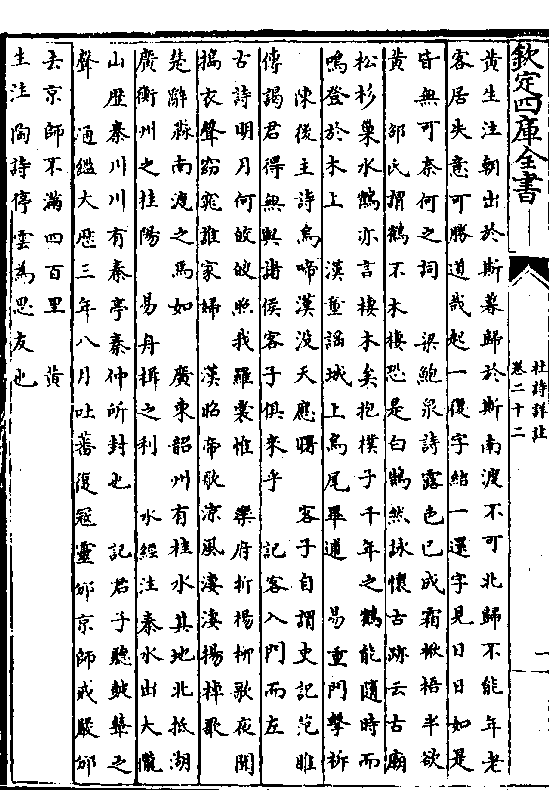 欽定四庫全書
杜詩詳註
卷二十二
黄生注朝出於斯暮歸於斯南渡不可北歸不能年老
客居失意可勝道哉起一復字結一還字見日日如是
皆無可奈何之詞　梁鮑泉詩露色已成霜楸梧半欲
黄　邵氏謂鶴不木棲恐是白然詠懐古跡云古廟
松杉巢水鶴亦言棲木矣抱樸子千年之鶴能隨時而
鳴登於木上　漢童謡城上烏尾畢逋　易重門擊柝
陳後主詩烏啼漢没天應曙　客子自謂史記范睢
傳謁君得無與諸侯客子俱來乎　記客入門而左
古詩明月何皎皎照我羅裳惟　樂府折楊栁歌夜聞
搗衣聲窈窕誰家婦　漢昭帝歌凉風凄凄揚棹歌
楚辭淼南渡之焉如　廣東韶州有桂水其地北抵湖
廣衡州之桂陽　易舟楫之利　水經注秦水出大隴
山歴秦川川有秦亭秦仲所封也　記君子聽鼓鼙之
聲　通鑑大歴三年八月吐蕃復冦靈邠京師戒嚴邠
去京師不滿四百里　黄
生注陶詩停雲為思友也